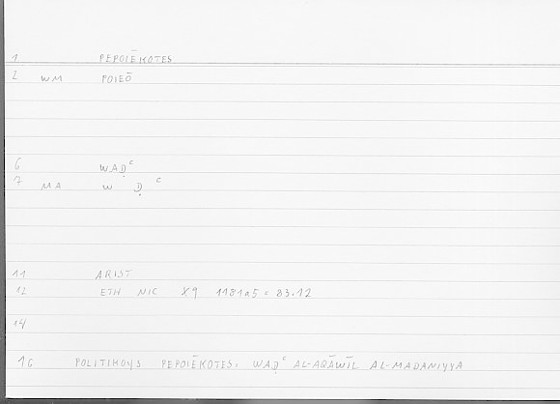 1 PEPOIĒKOTES
2 WM POIEŌ
6 WAḌᶜ
7 MA W Ḍ ᶜ
11 ARIST
12 ETH NIC X9 1181a5 = 83.12
14
16 POLITIKOYS PEPOIĒKOTES. WAḌᶜ AL-AQĀWĪL AL-MADANIYYA